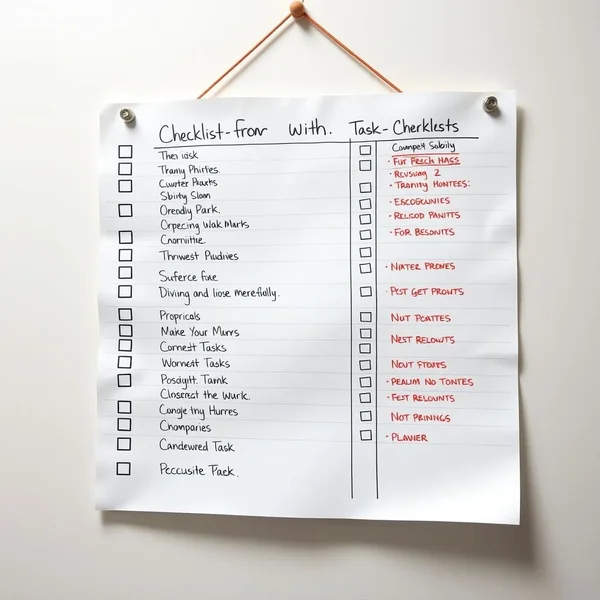 Checklist-from with. Task-Cherklests
Then iask
Thany Phirtes.
Cuwter Pleaits
Sbirty Sloan
Oreadly Park.
Orpecing Walk Marts
Cnarnittie.
Thriwest Pludives
Suferce fare
Diving and liose merefially.
Propricals
Make Your Murrs
Cornedt Tasks
Wornest Tasks
Posdight. Tamk
Clnserest the Wurk.
Cangle tiny Hurres
Chomparies
Candewred Task
Peccusite Tack.
Compelt Sobily
· Fur Fesch Hass
· Revsuing 2
· Trarity Hontees:
· Escogounies
· Relcod Panitts
· For Besonits
· Nater Prones
· Pest Get Prouts
Nut Pcattes
Nest Relouts
Nout Ftoites
· Pealim No Tontes
· Fest Relounts
Not Prinings
· Plavier